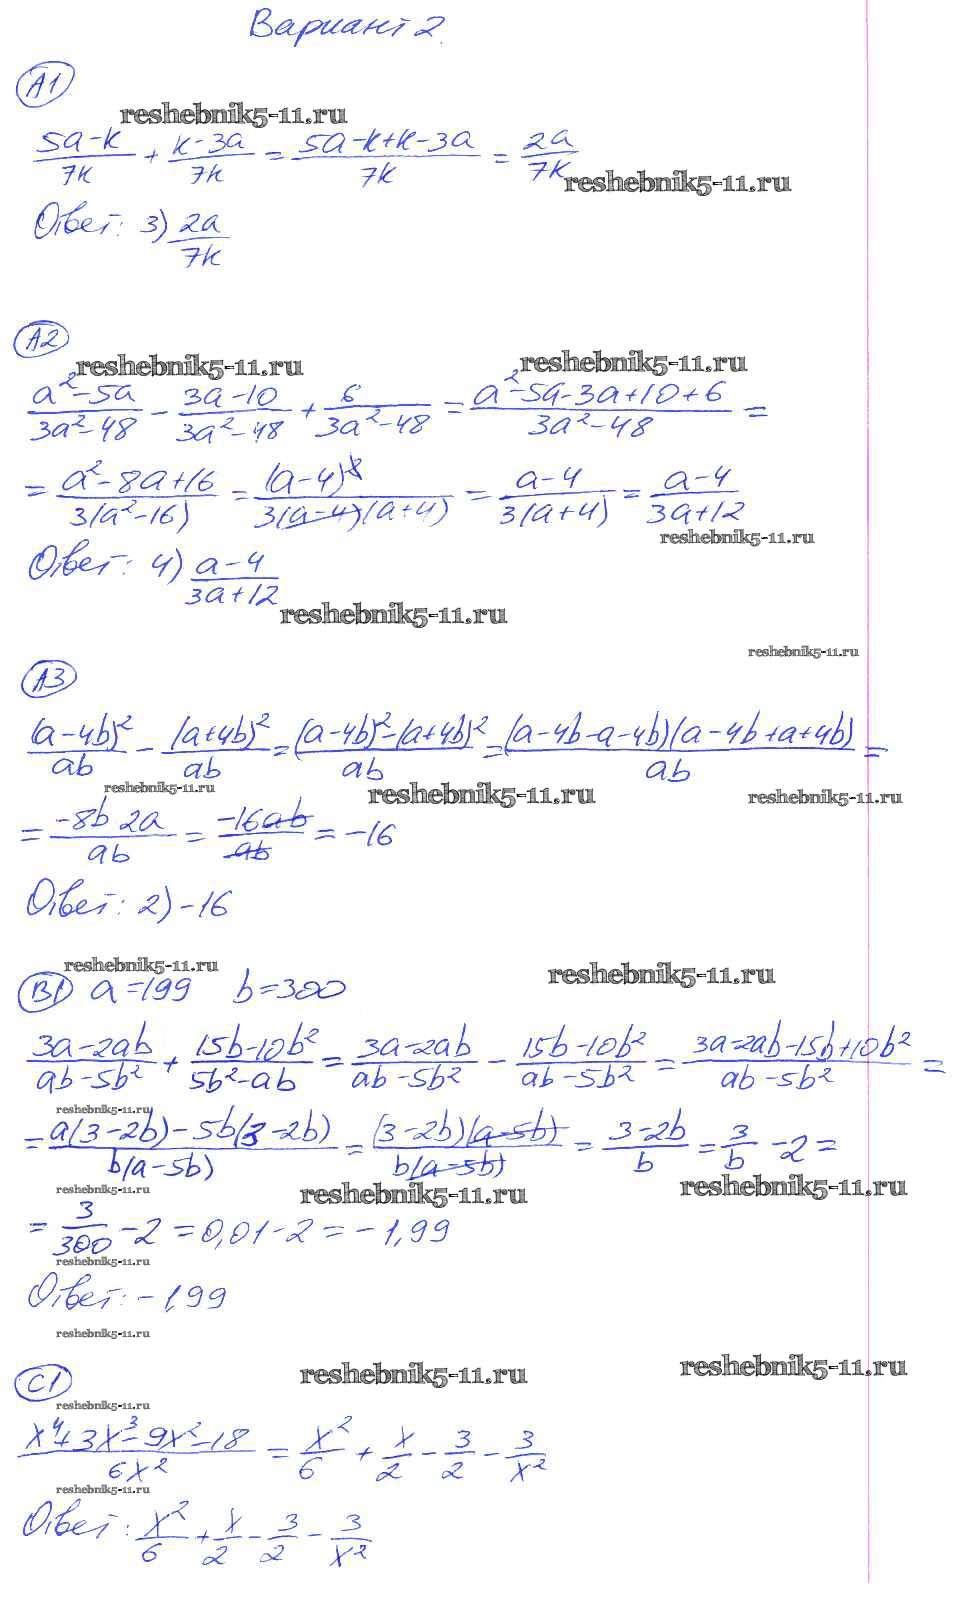 Вариант 2.
А1
reshebnik5-11.ru
(5a-k)/7k + (k-3a)/7k = (5a-k+k-3a)/7k = 2a/7k
reshebnik5-11.ru
Ответ: 3) 2a/7k
А2
reshebnik5-11.ru reshebnik5-11.ru
(a²-5a)/(3a²-48) - (3a-10)/(3a²-48) + 6/(3a²-48) = (a²-5a-3a+10+6)/(3a²-48) =
= (a²-8a+16)/3(a²-16) = (a-4)²/3(a-4)(a+4) = (a-4)/3(a+4) = (a-4)/(3a+12)
reshebnik5-11.ru
Ответ: 4) (a-4)/(3a+12)
reshebnik5-11.ru
reshebnik5-11.ru
А3
(a-4b)²/ab - (a+4b)²/ab = ((a-4b)²-(a+4b)²)/ab = (a-4b-a-4b)(a-4b+a+4b)/ab =
reshebnik5-11.ru reshebnik5-11.ru reshebnik5-11.ru
= -8b 2a/ab = -16ab/ab = -16
Ответ: 2) -16
reshebnik5-11.ru reshebnik5-11.ru
В1 a=199 b=300
(3a-2ab)/(ab-5b²) + (15b-10b²)/(5b²-ab) = (3a-2ab)/(ab-5b²) - (15b-10b²)/(ab-5b²) = (3a-2ab-15b+10b²)/(ab-5b²) =
reshebnik5-11.ru
= (a(3-2b)-5b(3-2b))/b(a-5b) = (3-2b)(a-5b)/b(a-5b) = (3-2b)/b = 3/b -2 =
reshebnik5-11.ru reshebnik5-11.ru reshebnik5-11.ru
= 3/300 -2 = 0,01-2 = -1,99
reshebnik5-11.ru
Ответ: -1,99
reshebnik5-11.ru
reshebnik5-11.ru reshebnik5-11.ru
С1
reshebnik5-11.ru
(x⁴+3x³-9x²-18)/6x² = x²/6 + x/2 - 3/2 - 3/x²
reshebnik5-11.ru
Ответ: x²/6 + x/2 - 3/2 - 3/x²